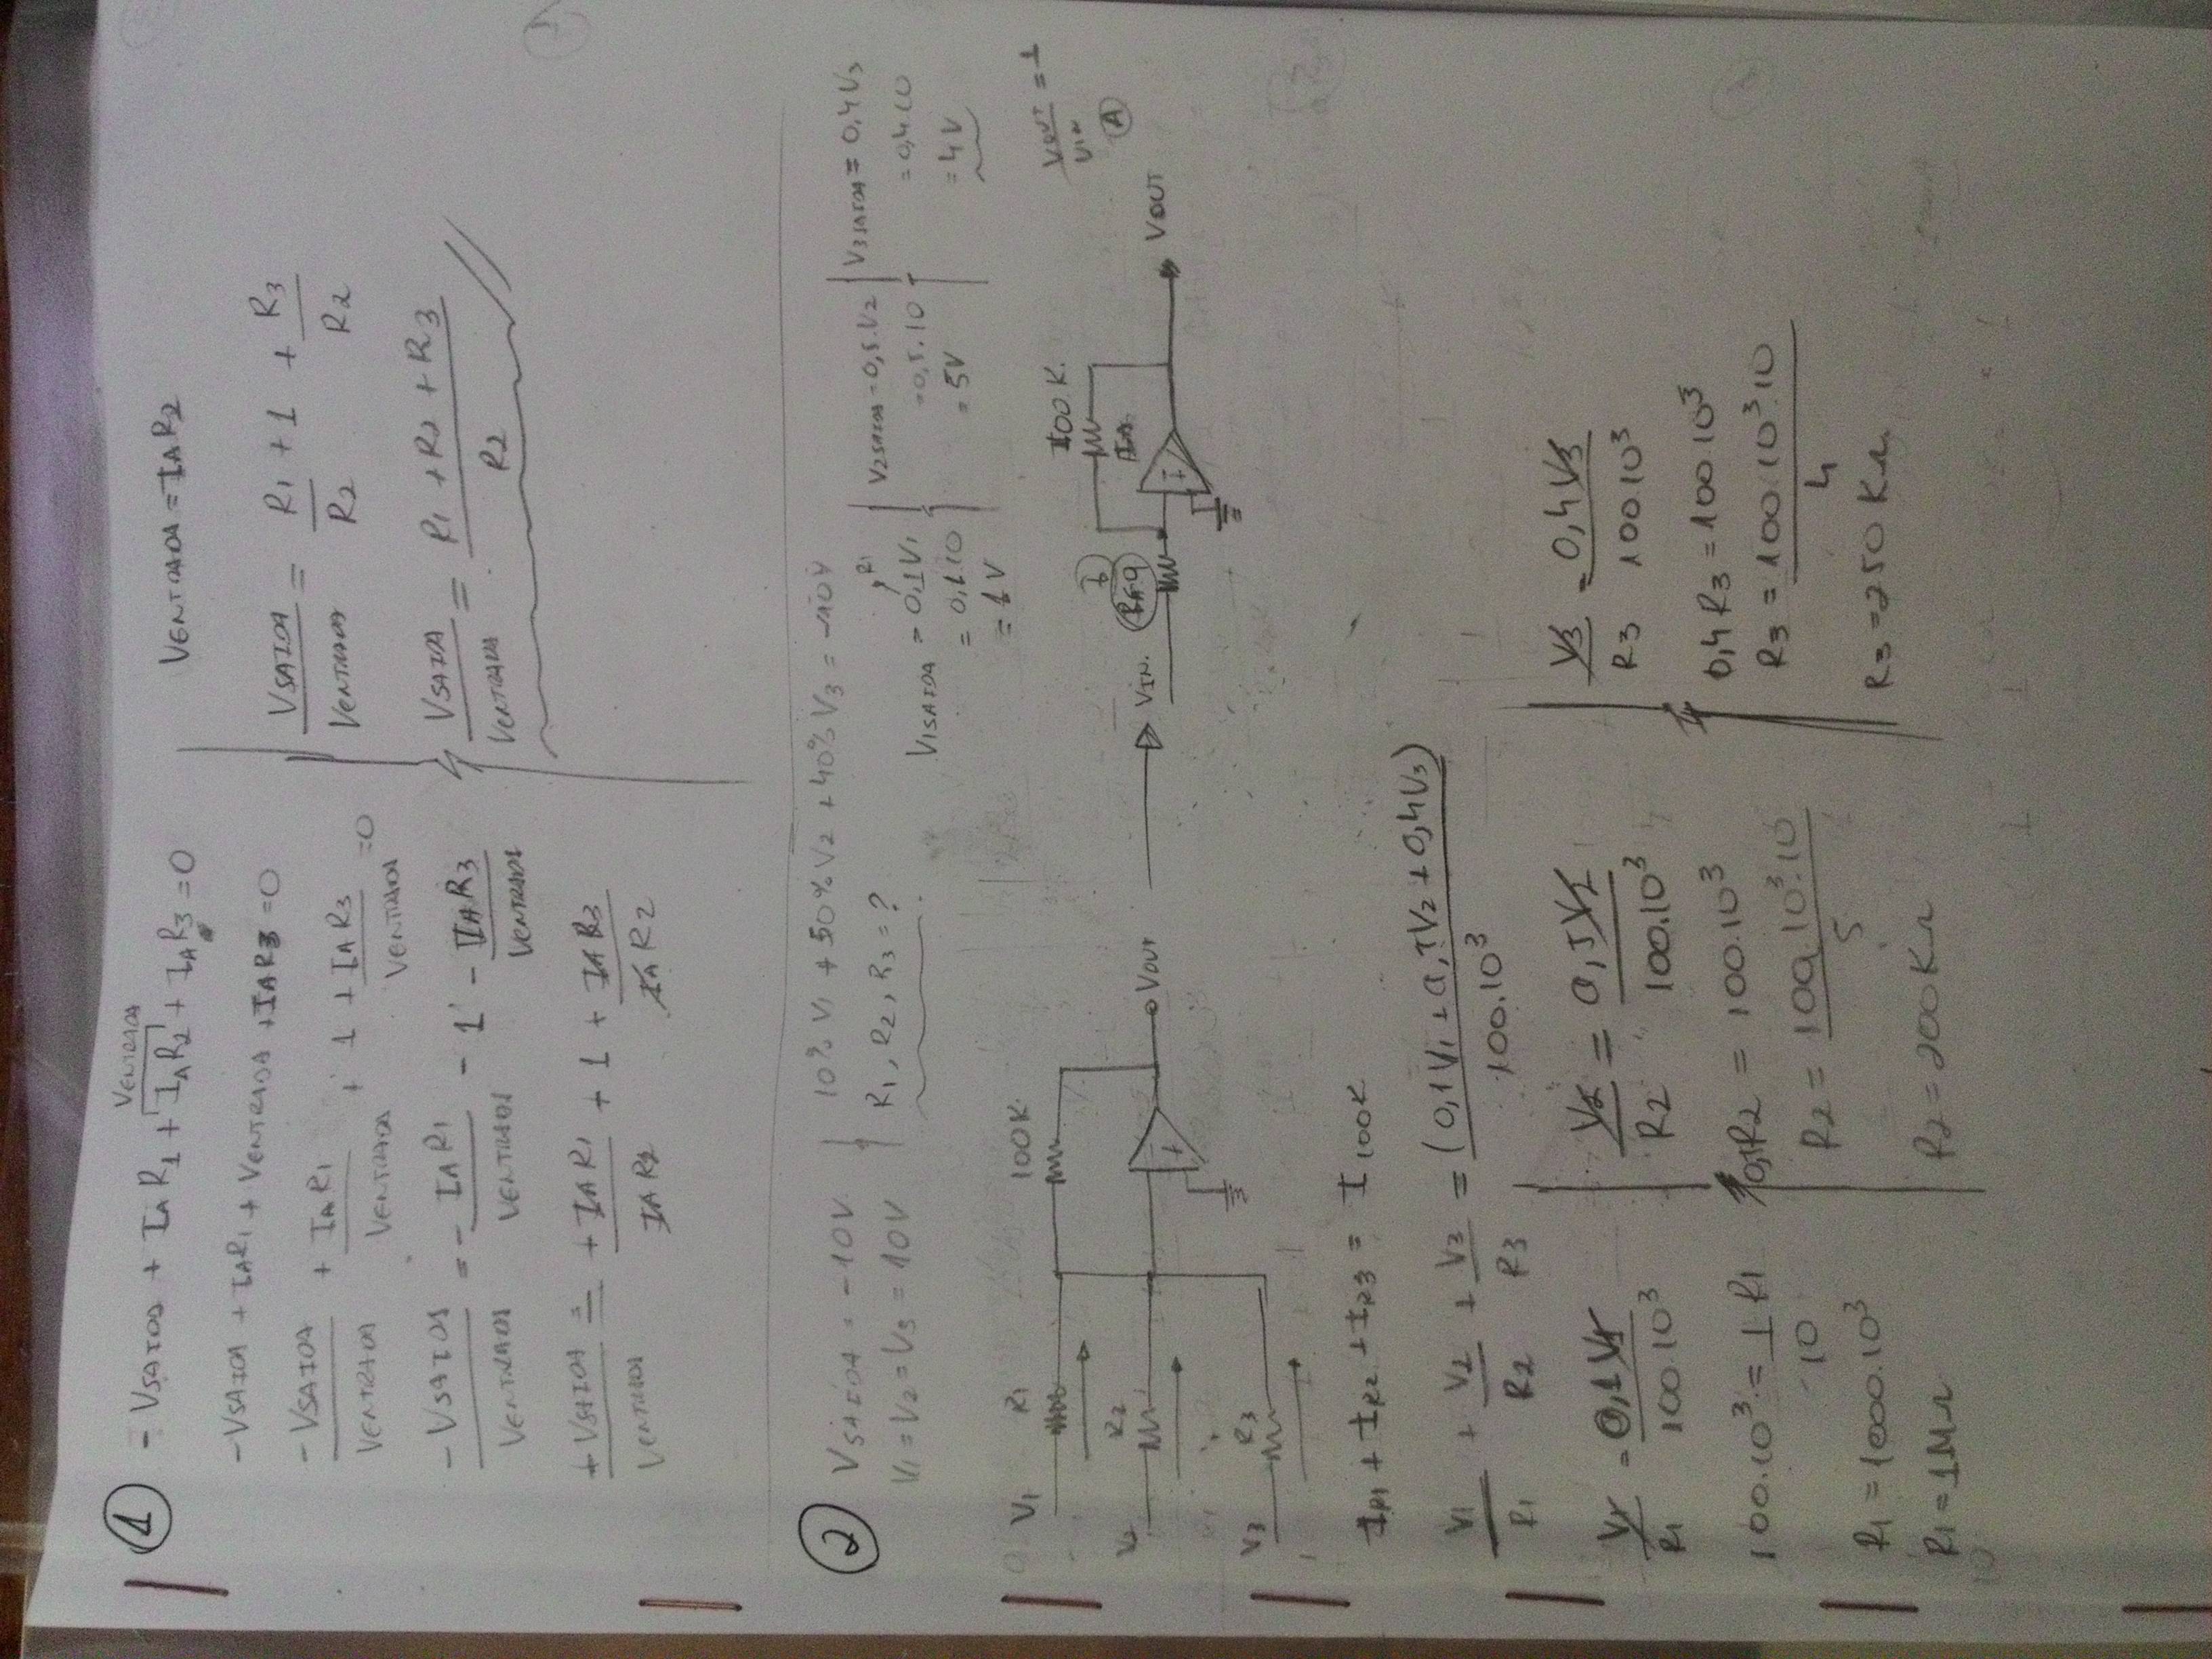 ①
- VSAIDA + IAR1 + IAR2 + IAR3 = 0
VENTRADA
-VSAIDA + IAR1 + VENTRADA + IAR3 = 0
-VSAIDA/VENTRADA + IAR1/VENTRADA + 1 + IAR3/VENTRADA = 0
-VSAIDA/VENTRADA = - IAR1/VENTRADA - 1 - IAR3/VENTRADA
+VSAIDA/VENTRADA = + IAR1/IAR2 + 1 + IAR3/IAR2
VENTRADA = IAR2
VSAIDA/VENTRADA = R1/R2 + 1 + R3/R2
VSAIDA/VENTRADA = R1 + R2 + R3/R2
②
VSAIDA = -10V
V1 = V2 = V3 = 10V
10% V1 + 50% V2 + 40% V3 = -10V
R1, R2, R3 = ?
V1SAIDA = 0,1V1
= 0,1.10
= 1V
V2SAIDA = 0,5.V2
= 0,5.10
= 5V
V3SAIDA = 0,4V3
= 0,4.10
= 4V
V1 R1 100K
V2 R2 VOUT
V3 R3
VIN. 100K. VOUT
VOUT/VIN = 1
A
IR1 + IR2 + IR3 = I100K
V1/R1 + V2/R2 + V3/R3 = (0,1V1 + 0,5V2 + 0,4V3)/100.10³
V1/R1 = 0,1V1/100.10³
100.10³ = 1/10 R1
R1 = 1000.10³
R1 = 1MΩ
V2/R2 = 0,5V2/100.10³
0,5R2 = 100.10³
R2 = 100.10³.10/5
R2 = 200KΩ
V3/R3 = 0,4V3/100.10³
0,4R3 = 100.10³
R3 = 100.10³.10/4
R3 = 250KΩ